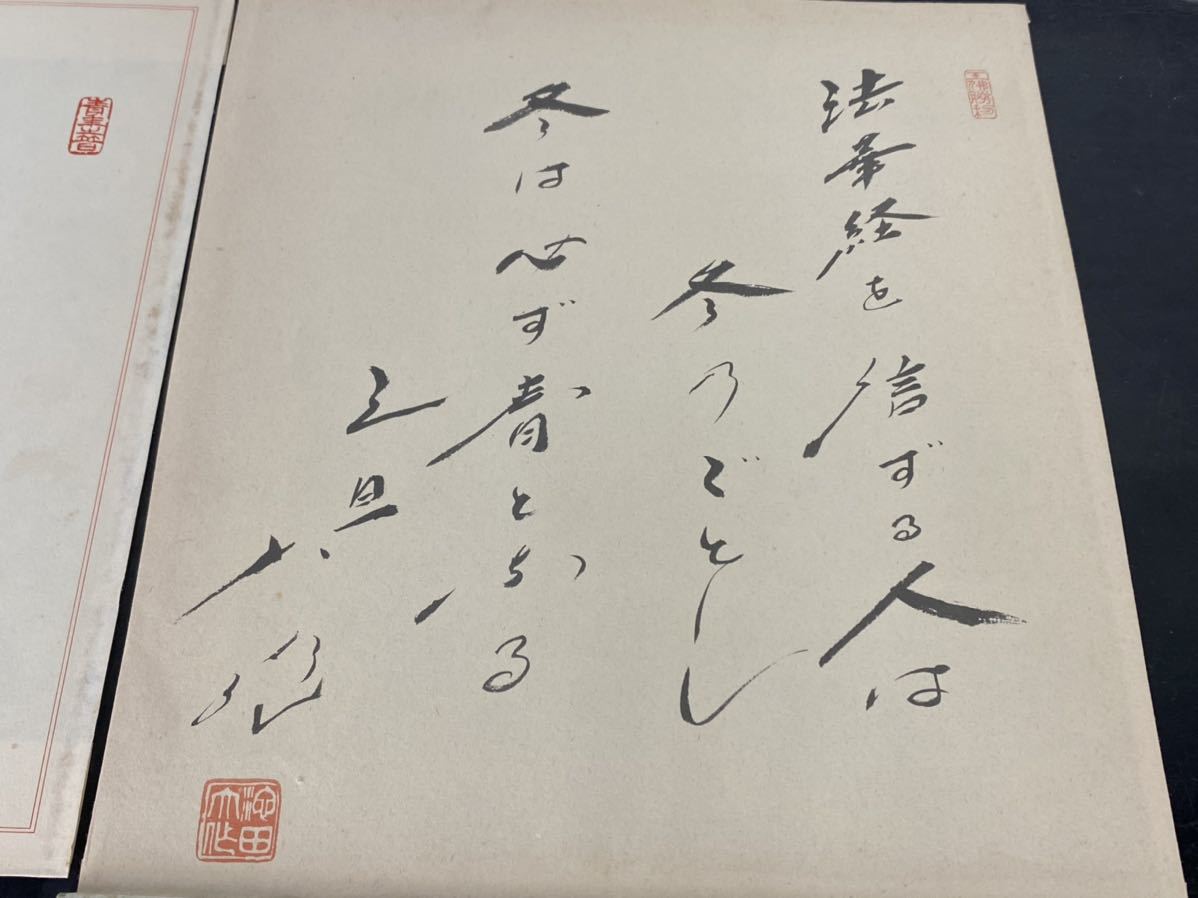 法華経を信ずる人は
冬のごとし
冬は必ず春となる
元旦
大作
池田
大作